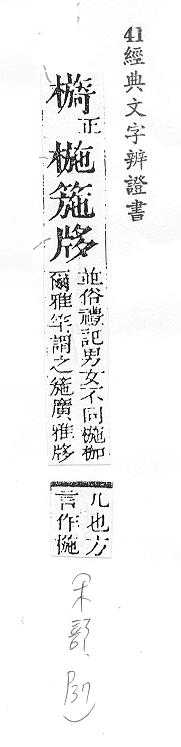 41經典文字辨證書
檹正
椸箷
並俗禮記男女不同椸枷
爾雅竿謂之箷廣雅
几也方
言作椸
(木部, P37)